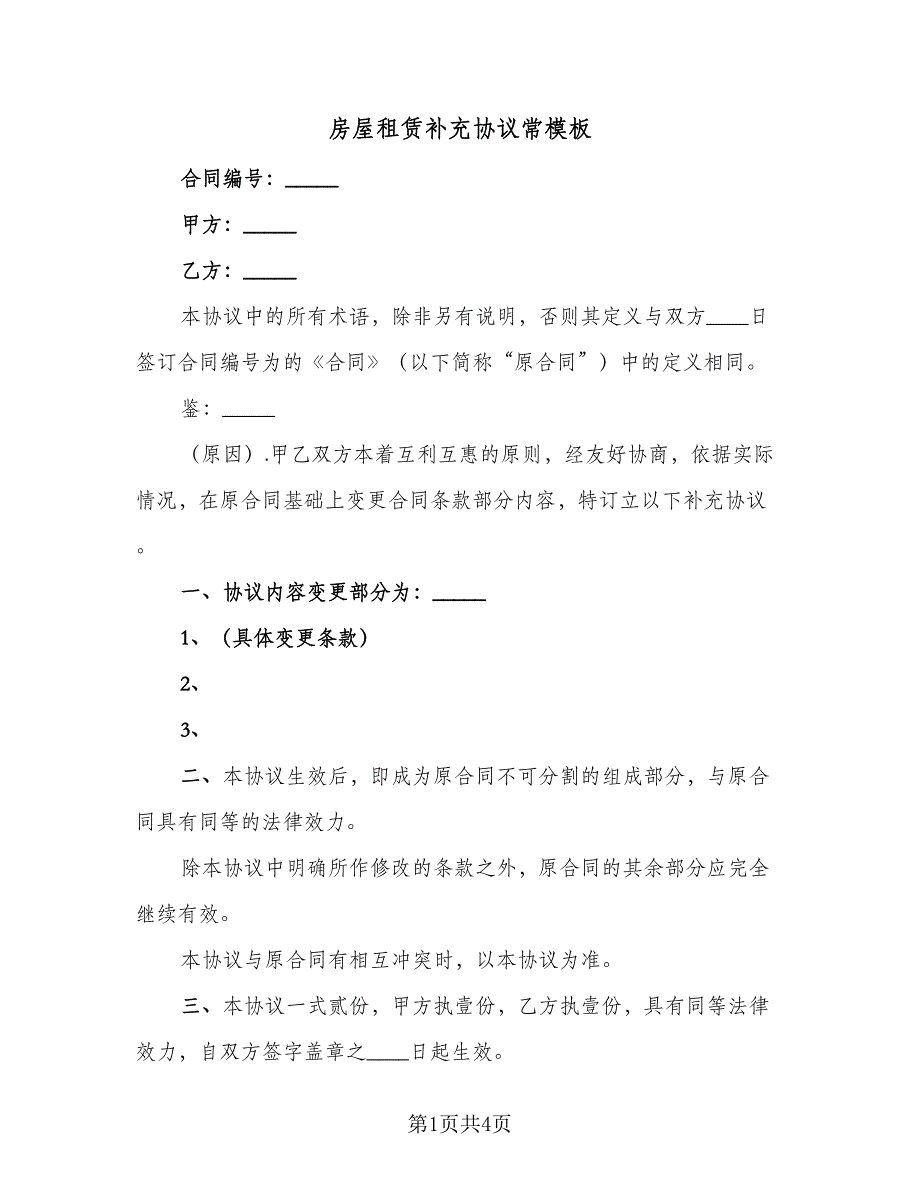 房屋租赁补充协议常模板
合同编号：_____
甲方：_____
乙方：_____
本协议中的所有术语，除非另有说明，否则其定义与双方____日
签订合同编号为的《合同》（以下简称“原合同”）中的定义相同。
鉴：_____
（原因）.甲乙双方本着互利互惠的原则，经友好协商，依据实际
情况，在原合同基础上变更合同条款部分内容，特订立以下补充协议
。
一、协议内容变更部分为：_____
1、（具体变更条款）
2、
3、
二、本协议生效后，即成为原合同不可分割的组成部分，与原合
同具有同等的法律效力。
除本协议中明确所作修改的条款之外，原合同的其余部分应完全
继续有效。
本协议与原合同有相互冲突时，以本协议为准。
三、本协议一式贰份，甲方执壹份，乙方执壹份，具有同等法律
效力，自双方签字盖章之____日起生效。
第1页共4页